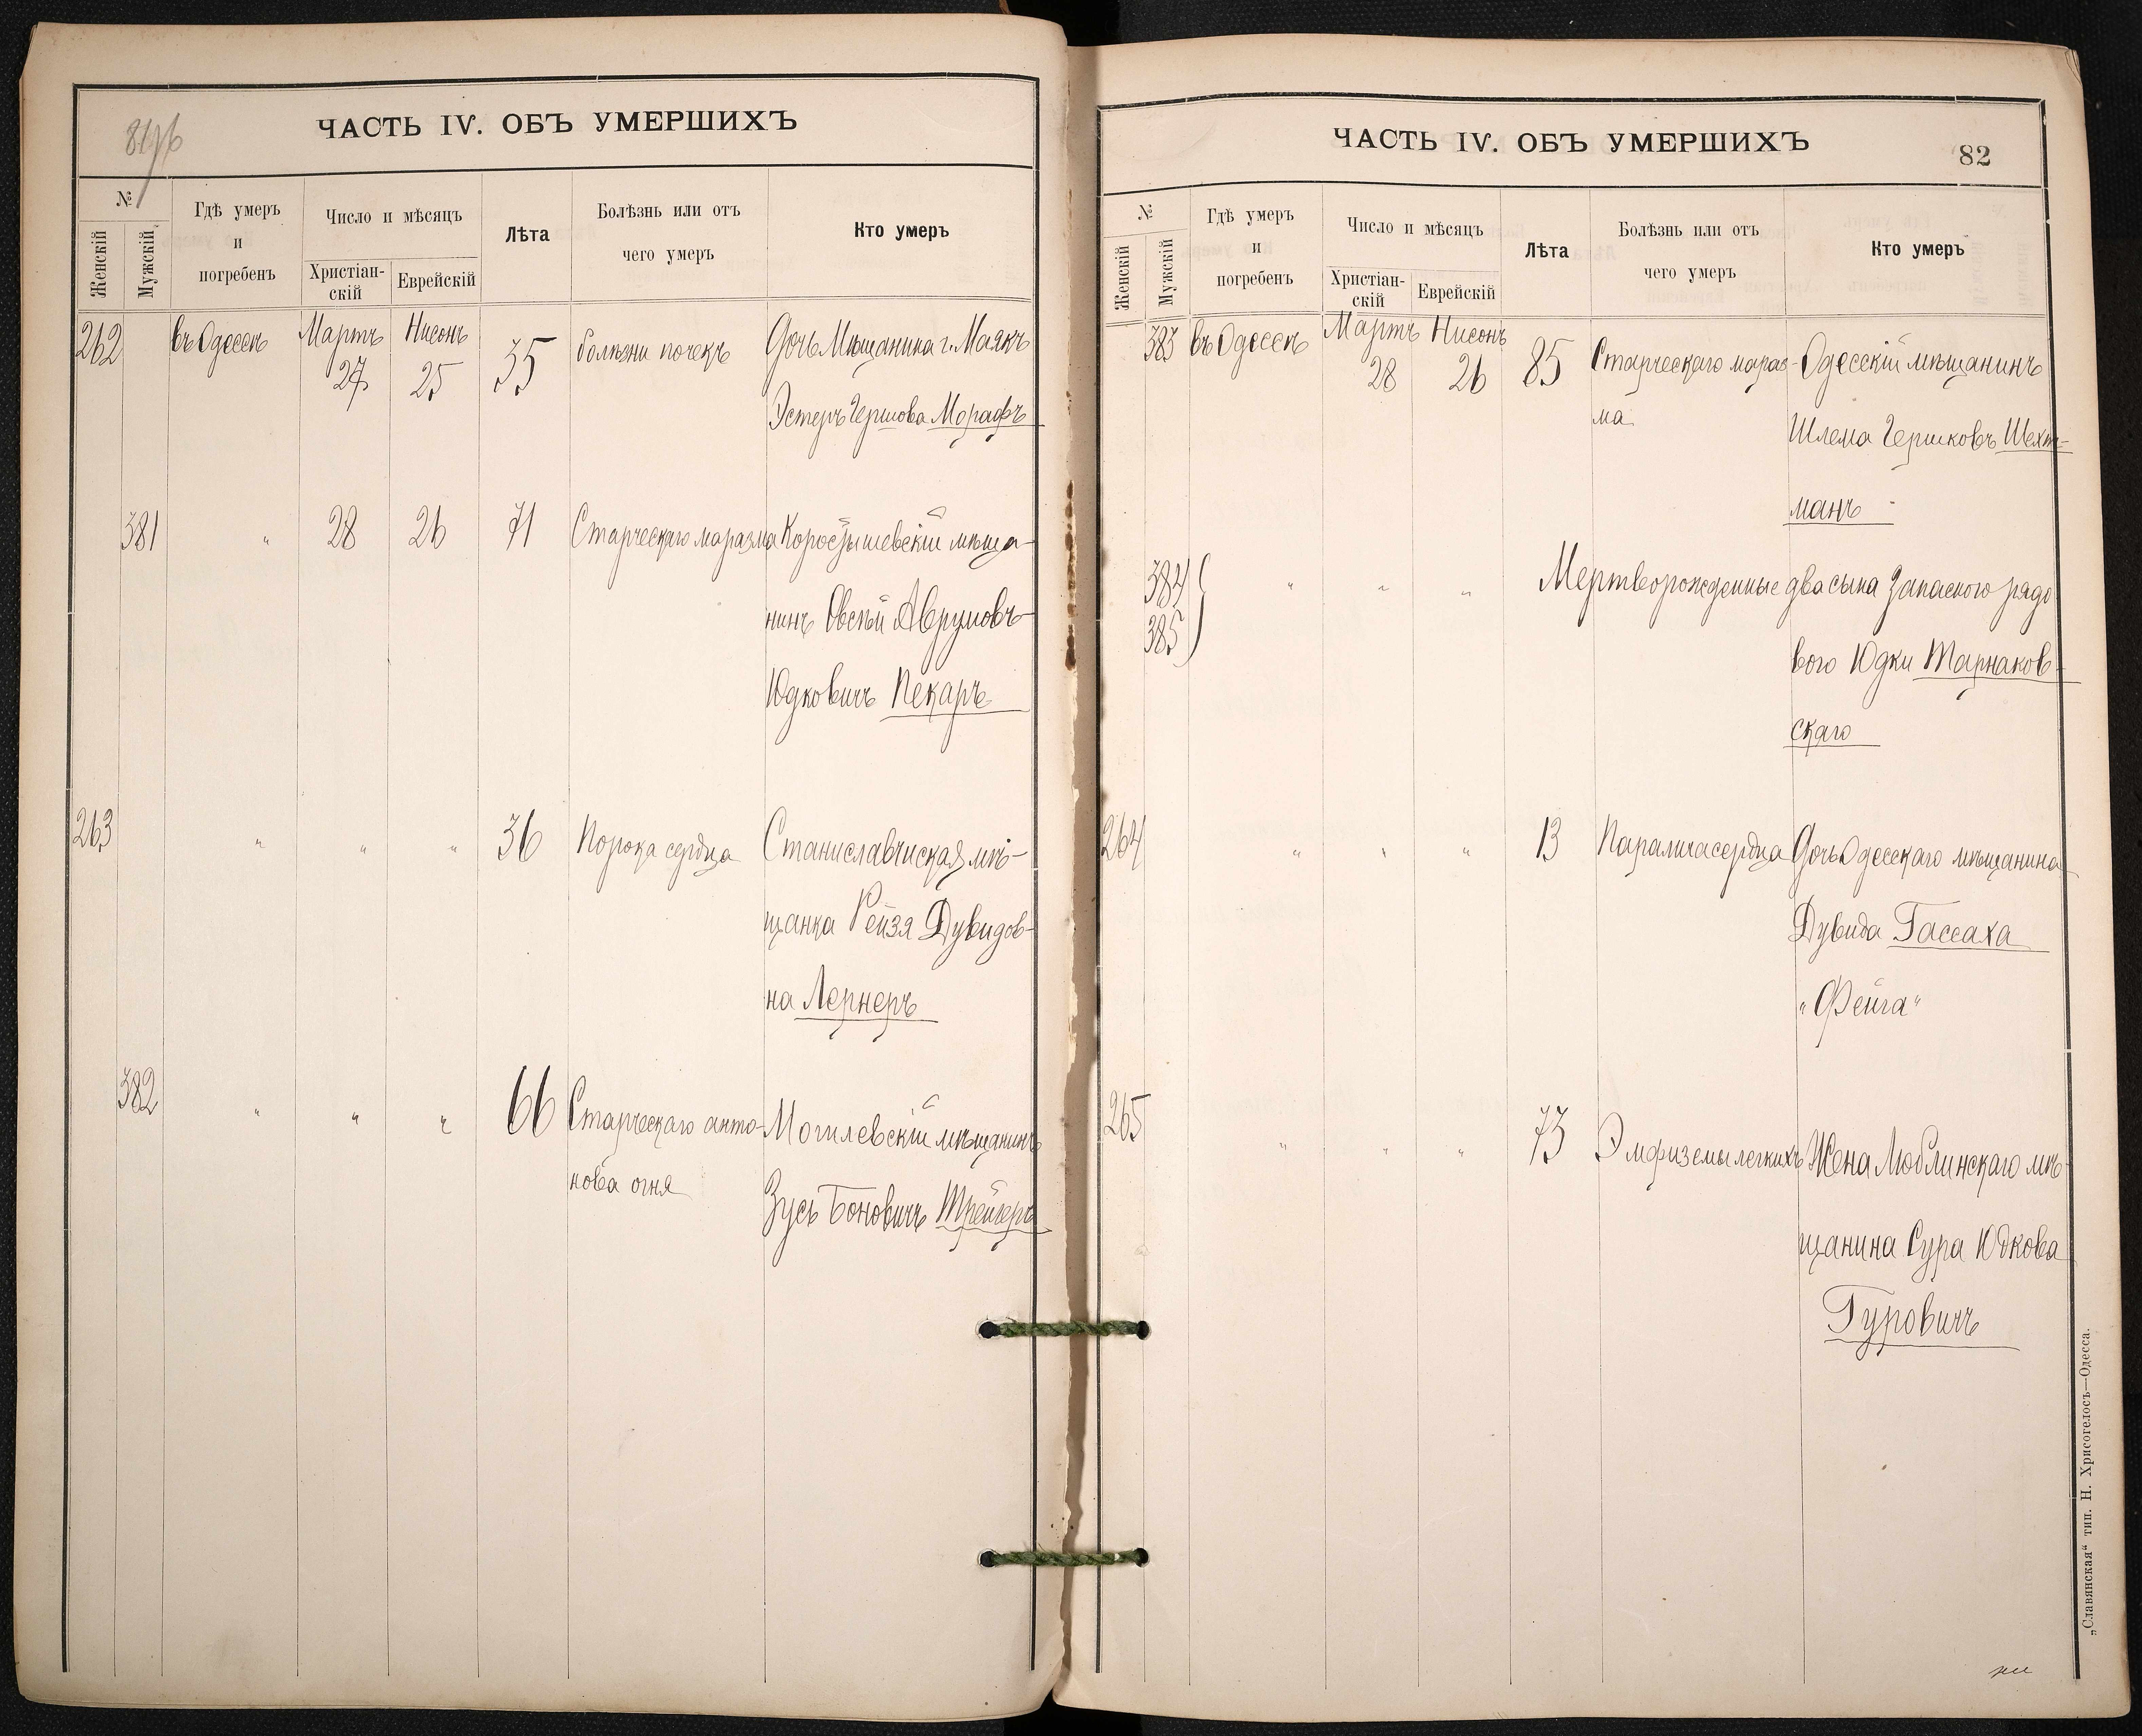 ЧАСТЬ IV. ОБЪ УМЕРШИХЪ
№
Женскій
Мужскій
Гдѣ умеръ
и
погребенъ
Число и мѣсяцъ
Христіан-
скій
Еврейскій
Лѣта
Болѣзнь или отъ
чего умеръ
Кто умеръ
262 въ Одессѣ Мартъ Нисонъ 35 болѣзни почекъ Дочь Мѣщанина г. Маякъ
27 25
Эстеръ Гершова Морафъ
381 " 28 26 71 Старческаго маразма Коростышевскій мѣща-
нинъ Овсѣй Аврумовъ-
Юдковичъ Пекарь
263 " " " 36 Порока сердца Станиславчиская мѣ-
щанка Рейзя Дувидов-
на Лернеръ
382 " " " 66 Старческаго анто- Могилевскій мѣщанинъ
нова огня
Зусь Боновичъ Трейгеръ
ЧАСТЬ IV. ОБЪ УМЕРШИХЪ
82
№
Женскій
Мужскій
Гдѣ умеръ
и
погребенъ
Число и мѣсяцъ
Христіан-
скій
Еврейскій
Лѣта
Болѣзнь или отъ
чего умеръ
Кто умеръ
383 въ Одессѣ Мартъ Нисонъ
28 26 85 Старческаго мараз- Одесскій мѣщанинъ
ма
Шлема Гершковъ Шехт-
манъ
384 " " " Мертворожденные два сына Запасного рядо
385
вого Юдки Тарнаков-
скаго
264 " " " 13 Паралича сердца Дочь Одесскаго мѣщанина
Дувида Гассаха
"Фейга"
265 " " " 73 Эмфиземы легкихъ Жена Люблинскаго мѣ-
щанина Сура Юдкова
Гуровичъ
„Славянская“ тип. Н. Хрисогелосъ—Одесса.